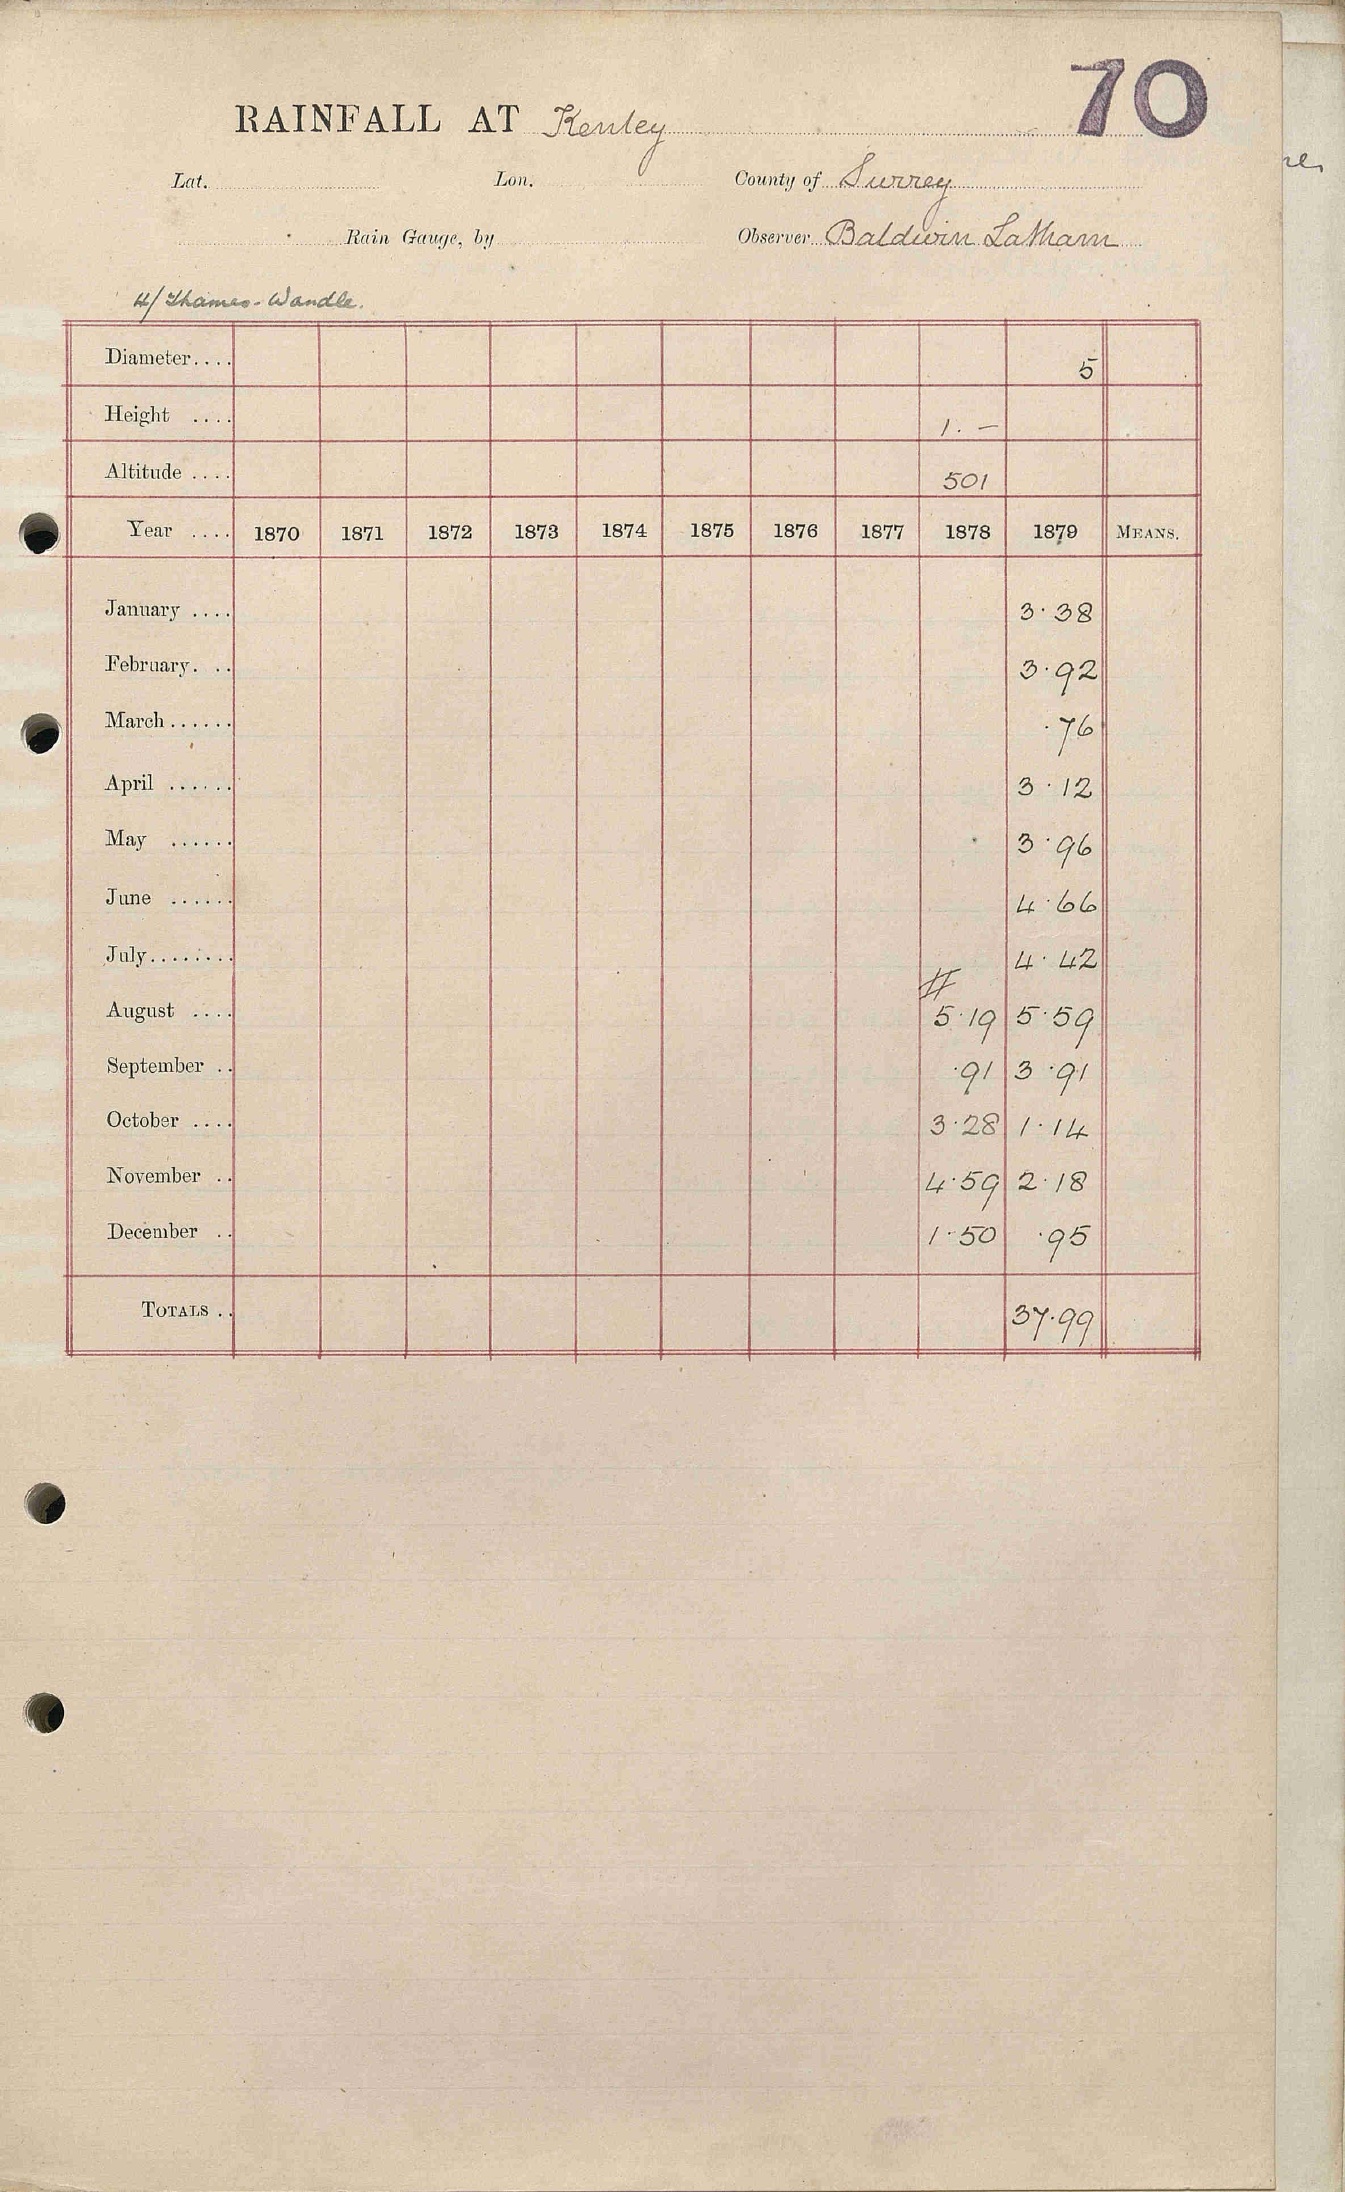 70
RAINFALL AT Kenley
Lat. Lon. County of Surrey
Rain Gauge, by Observer Baldwin Latham
4/ Thames-Wandle.
Diameter.... 5
Height .... 1. –
Altitude .... 501
Year .... 1870 1871 1872 1873 1874 1875 1876 1877 1878 1879 MEANS.
January .... 3.38
February. .. 3.92
March...... .76
April ...... 3.12
May ...... 3.96
June ...... 4.66
July........ 4.42
August .... 5.19 5.59
September .. .91 3.91
October .... 3.28 1.14
November .. 4.59 2.18
December .. 1.50 .95
TOTALS .. 37.99